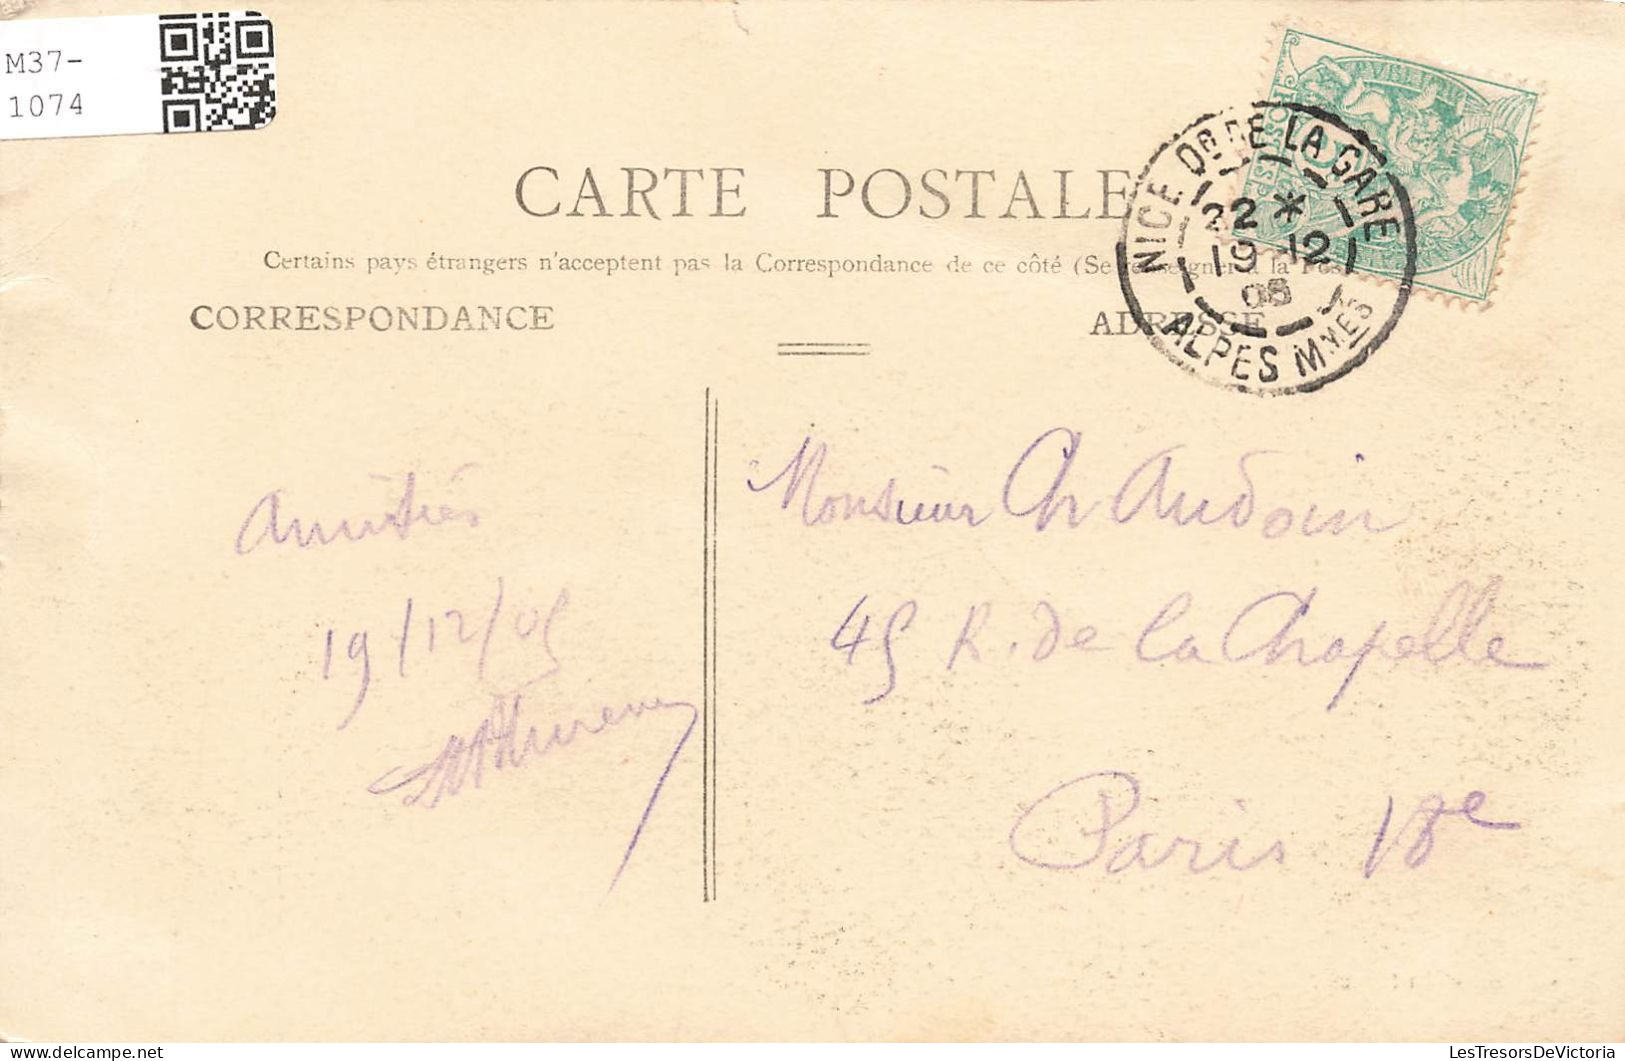 M37-
1074
CARTE POSTALE
Certains pays étrangers n'acceptent pas la Correspondance de ce côté (Se renseigner à la Poste
CORRESPONDANCE
ADRESSE
NICE Dg DE LA GARE
22 * 1
19 12
05
ALPES MMES
Amitiés
19/12/05
Monsieur Ch Audoin
45 R. de la Chapelle
Paris 18e
LesTresorsDeVictoria